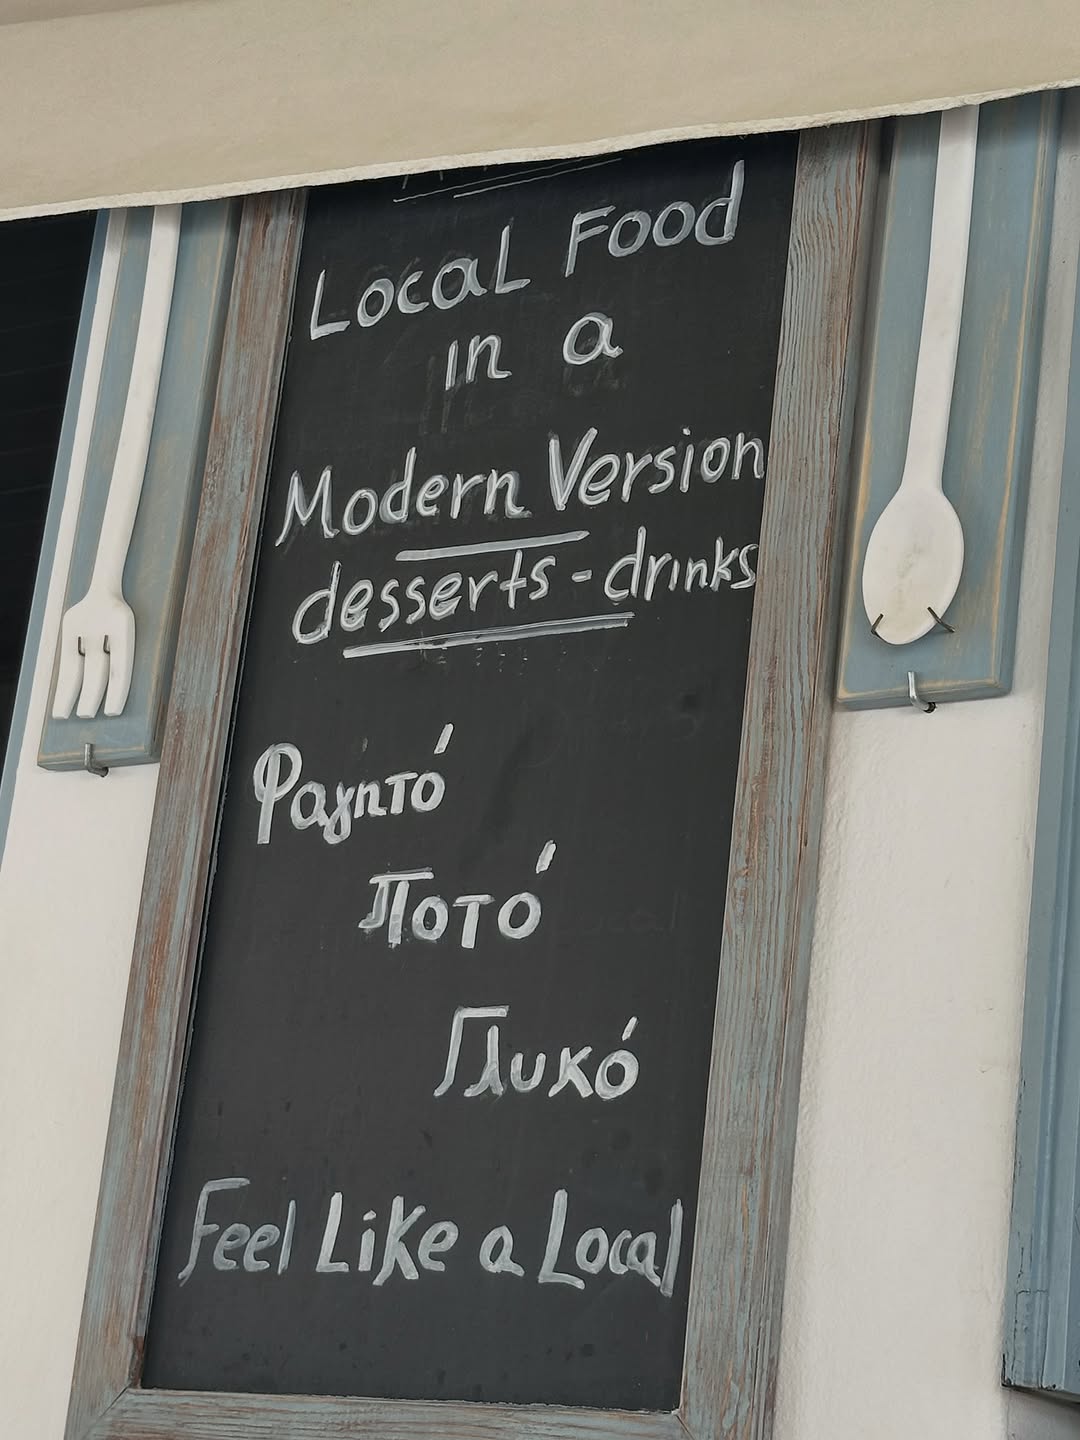 Local Food
in a
Modern Version
desserts - drinks
Φαγητό
Ποτό
Γλυκό
Feel Like a Local